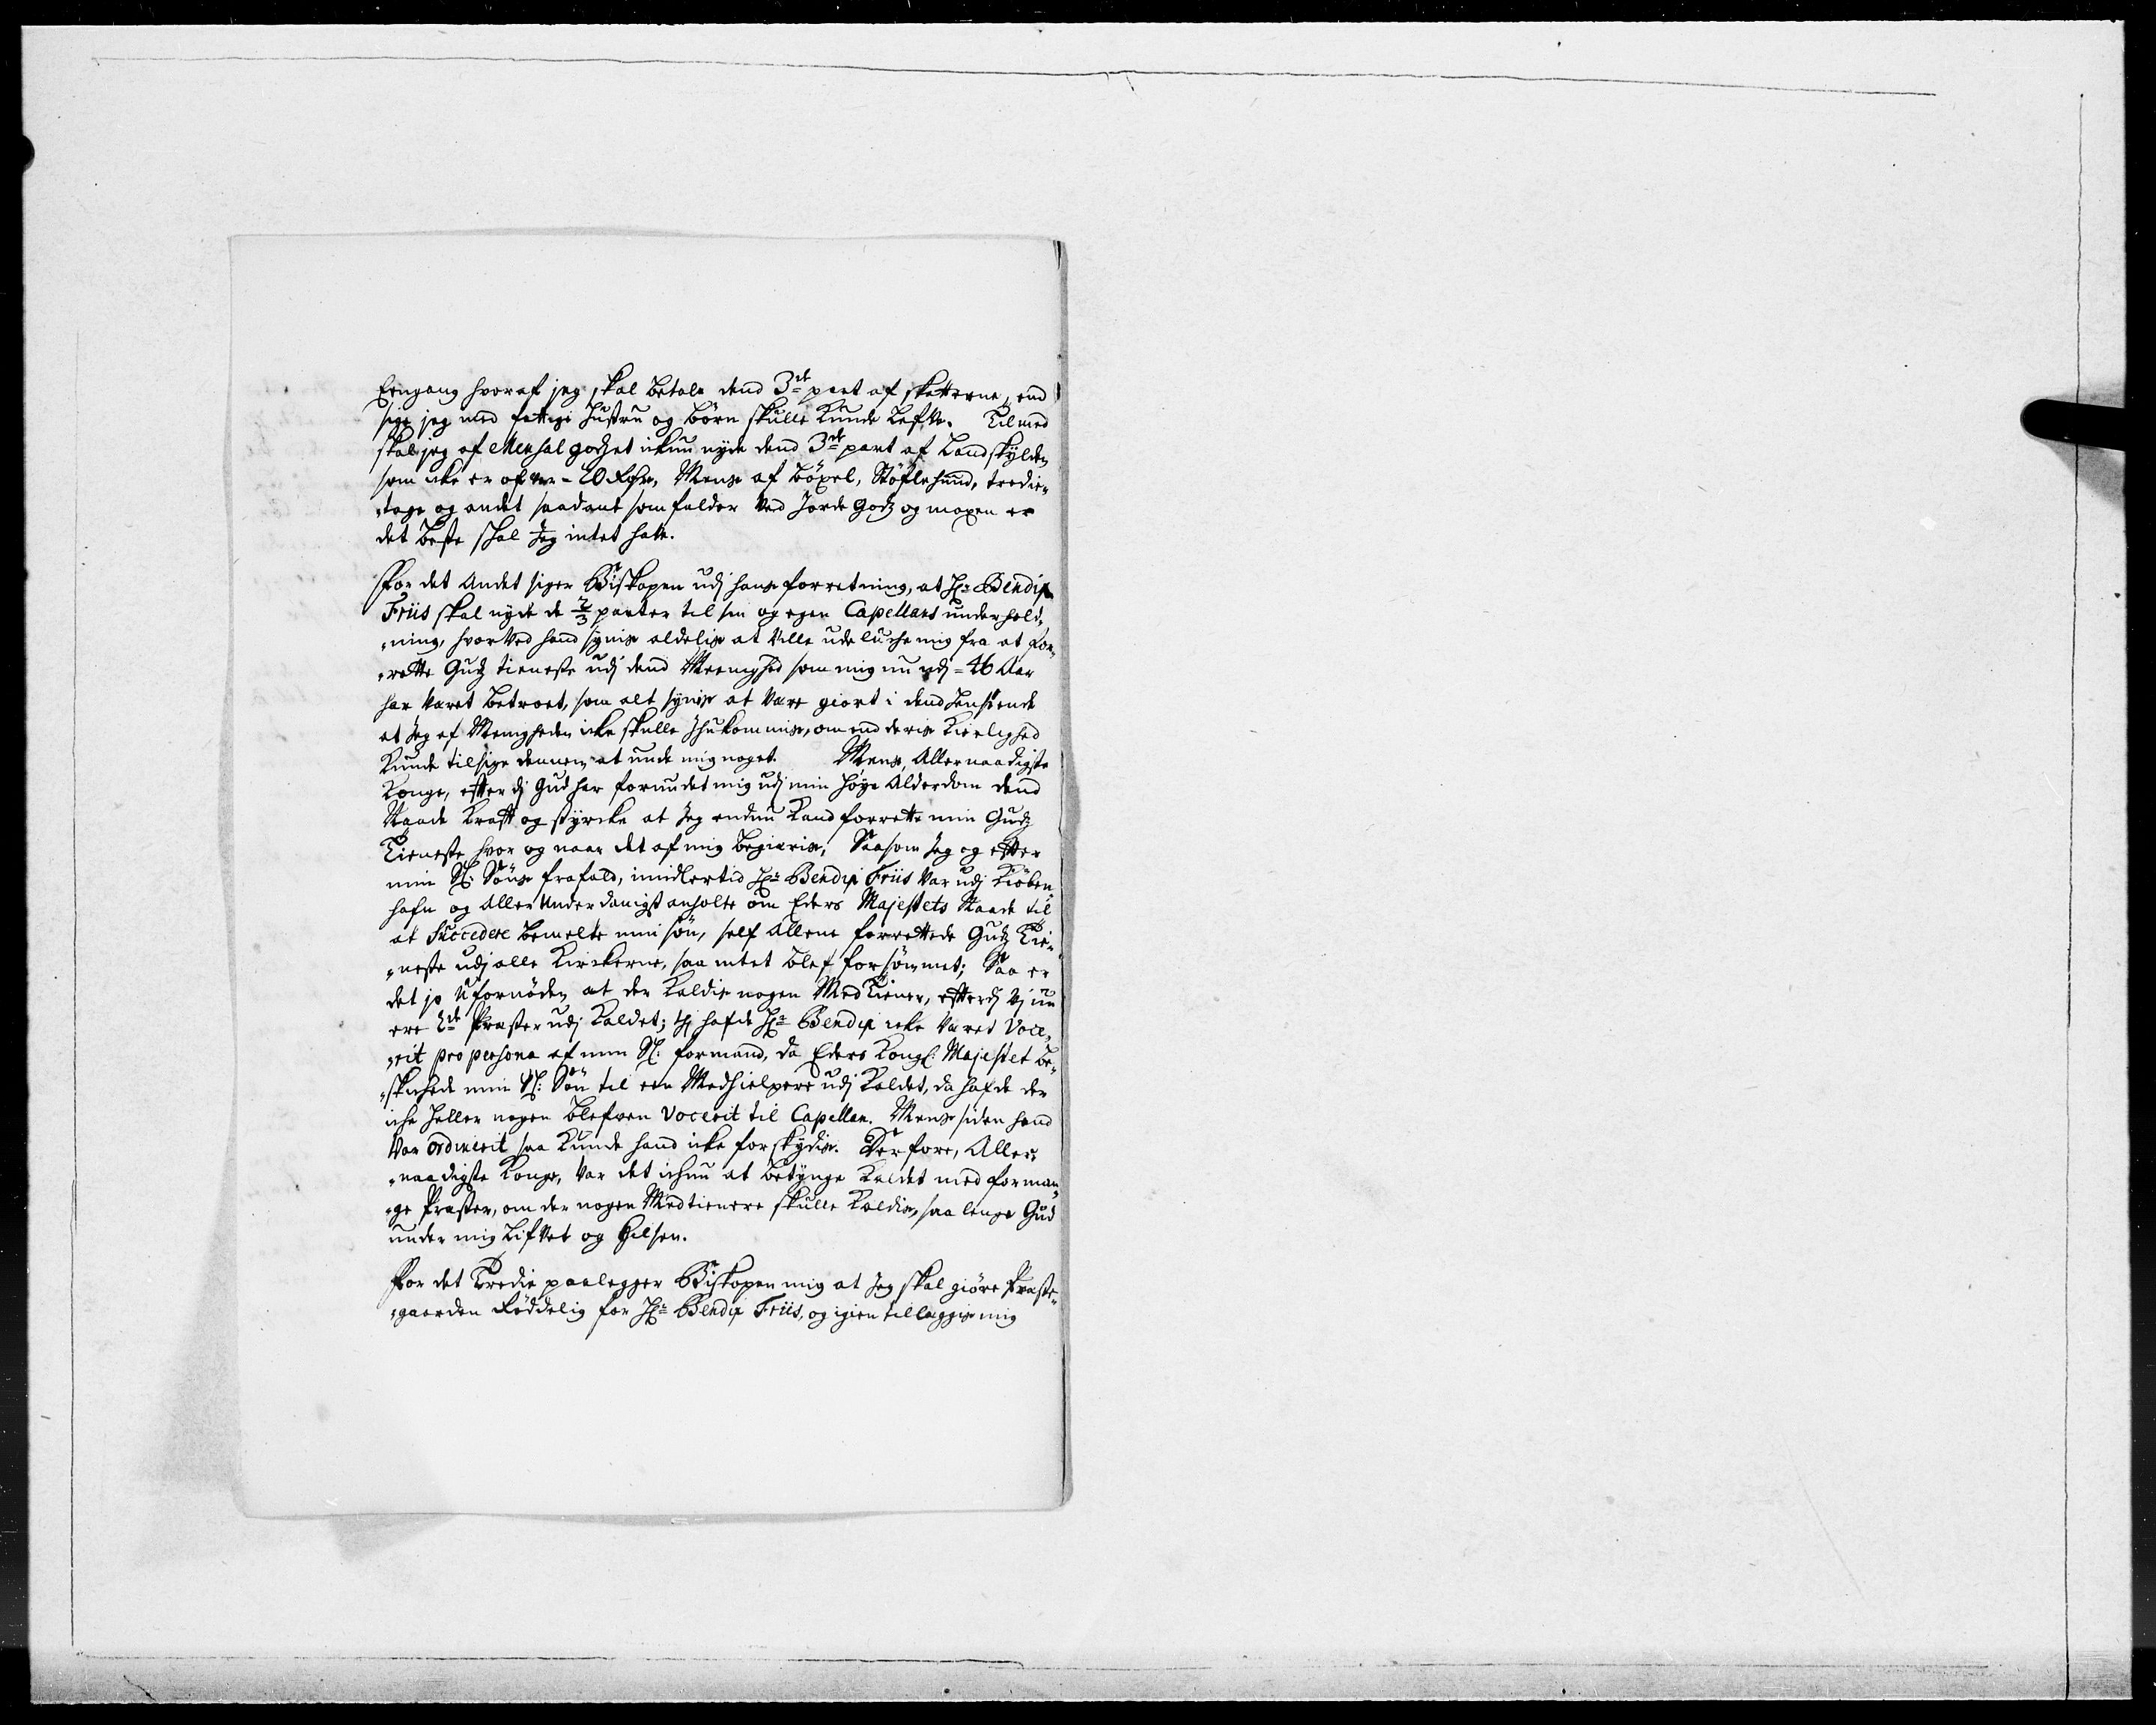 Eengang hvoraf jeg skal betale dend 3de part af skatterne, end
sige jeg med fattige Hustru og børn skulle kunde lefve. Tilmed
skal jeg af Mensal godzet ickun nyde dend 3de part af Landskylden
som icke er ofver = 20 Rdr, Mens af böxel, Stöflehund, tredie„
„tage og andet saadant som falder ved Jorde Godz og maxen er
det beste skal Jeg intet hafve.
For det Andet siger Biskopen udj hans forretning, at Hr: Bendix
Friis skal nyde de 2/3 parter til sin og egen Capellans underhold„
„ning, hvorved hand synis aldelis at ville udeluche mig fra at for„
„rette Gudz tieneste udj dend Meenighed som mig nu udj = 46 Aar
har været betroet, som alt synis at være giort i dend henseende
at Jeg af Menigheden icke skulle Ihukommis, om end deris Kierlighed
kunde tilsige dennem at unde mig noget. Mens, Allernaadigste
Konge, efterdj Gud har forundet mig udj min høye Alderdom dend
Naade Kraft og styrcke at Jeg endnu kand forrette min Gudz
Tieneste hvor og naar det af mig begieris, Saasom Jeg og efter
min Sl: Søns frafald, imidlertid Hr: Bendix Friis var udj Kiøben„
hafn og Aller Underdanigst anholte om Eders Majestets Naade til
at Succedere bemelte min søn, self Allene forrettede Gudz Tie„
„neste udj alle Kirckerne, saa intet blef forsømmet; Saa er
det jo Ufornøden at der kaldis nogen Med Tiener, efterdj Vj nu
ere 2de Præster udj Kaldet; thj hafde Hr: Bendix icke været Voce„
„rit pro persona af min Sl: formand, da Eders Kongl: Majestet be„
„skichede min Sl: Søn til een Medhielpere udj Kaldet, da hafde der
iche heller nogen blefven Vocerit til Capellan. Mens siden hand
var ordinerit saa kunde hand icke forskydis. Derfore, Aller„
„naadigste Konge, var det ickun at betynge Kaldet med for man„
„ge Præster, om der nogen Medtienere skulle kaldis, saa lenge Gud
under mig Lifvet og Hilsen.
For det Tredie paalegger Biskopen mig at Jeg skal giöre Præste„
„gaarden Röddelig for Hr: Bendix Friis, og igien tillæggis mig